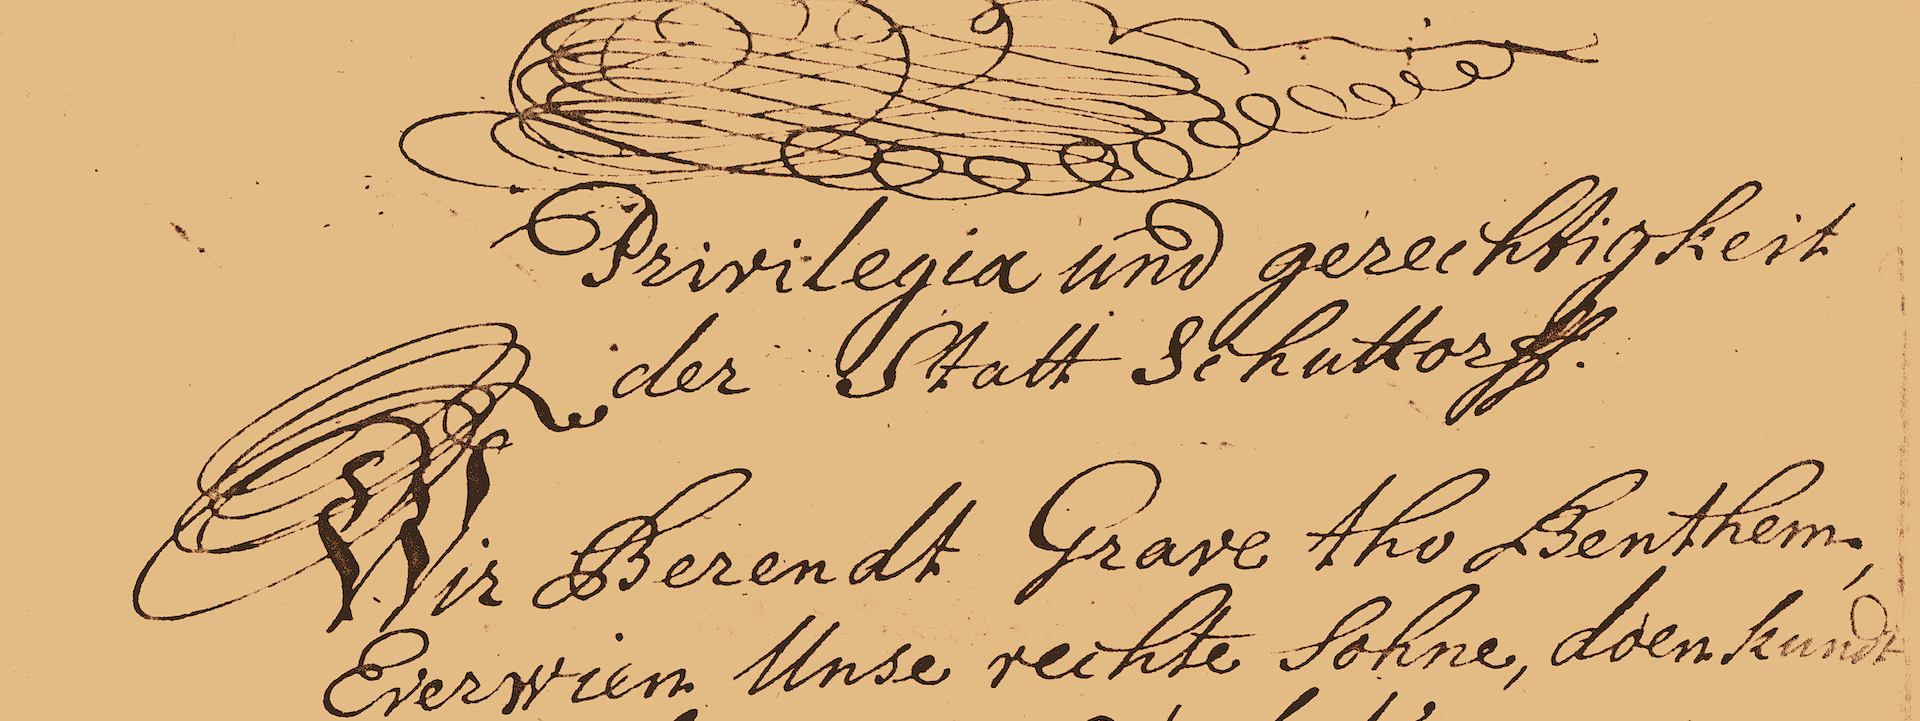 Privilegia und gerechtigkeit
der Statt Schuttorff.
Wir Berendt Grave tho Benthem,
Everwien Unse rechte Sohne, doen kundt